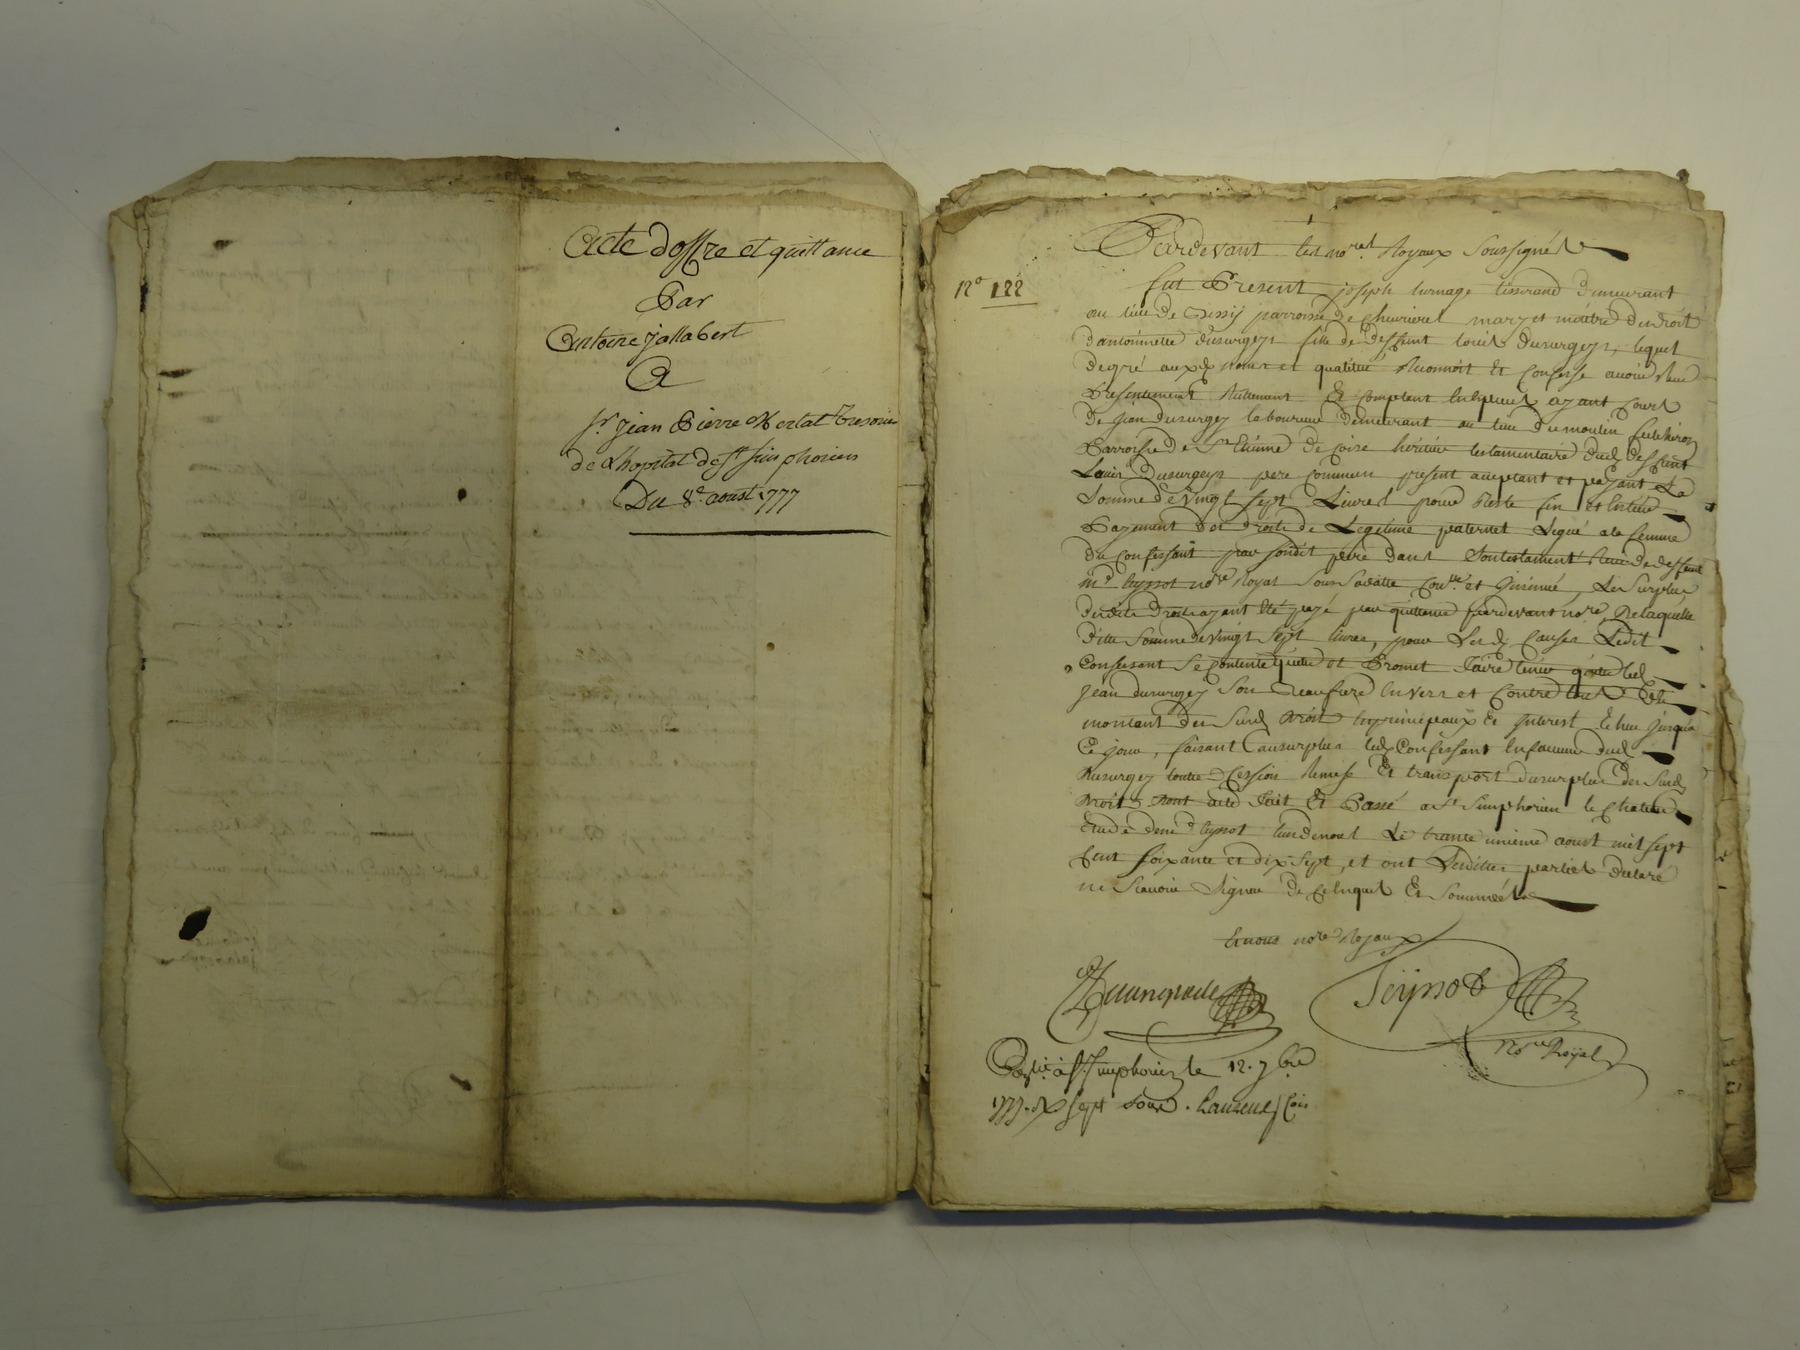 Acte doffre et quittance
Par
Antoine jallabert
A
Sr. jean Pierre Mertat Tresorier
de Lhopital de St simphorien
Du 8e. aoust 1777
No 122
Pardevant les nores. Royaux Soussignés
fut Present joseph tisserand demeurant
au lieu de parroisse de Chevrieres mary et maitre des droits
dantoinnette dusurgeys fille de deffunt louis dusurgeys, lequel
de gré auxd. noms et qualités Reconnoit et Confesse avoir Reçu
Presentement Reellement Et Comptant En Especes ayant Cours
de jean dusurgey laboureur demeurant au lieu du moulin
Parroisse de St Etienne de Coise heritier testamentaire dud. deffunt
Louis Dusurgeys pere Commun present acceptant et payant La
Somme de vingt sept Livres pour Reste fin Et Entier
Payement des droits de Legitime paternel Legué a la femme
du Confessant par sondit pere dans Son testament Reçu de deffunt
me. peyssot nore Royal Sous Sa datte Conlle. et Insinué, Le Surplus
desdits droits ayant Eté payé par quittance pardevant nore, De laquelle
ditte Somme de vingt Sept livres, pour Les d. Causes Ledit
Confessant Se Contente quitte et Promet faire tenir quitte led.
jean dusurgey Son Beaufrere Envers et Contre tous Et
montant des Susd. Droits En principaux Et Interest Echus jusqua
Ce jour, faisant au surplus led. Confessant En faveur dud.
dusurgey toutte Cession Remise Et transport du surplus des Susd.
Droits Dont acte fait Et Passé a St Simphorien le Chateau
Etude de me. peyssot lun de nous Le trante unieme aoust mil sept
Cent soixante et dix Sept, et ont Lesdittes parties declaré
ne Scavoir Signer de Ce Enquis Et Sommées
Et nous nores Royaux
Peyssot
Nore Royal
à St. Simphorien le 12. 7bre
1777. Sept sous.